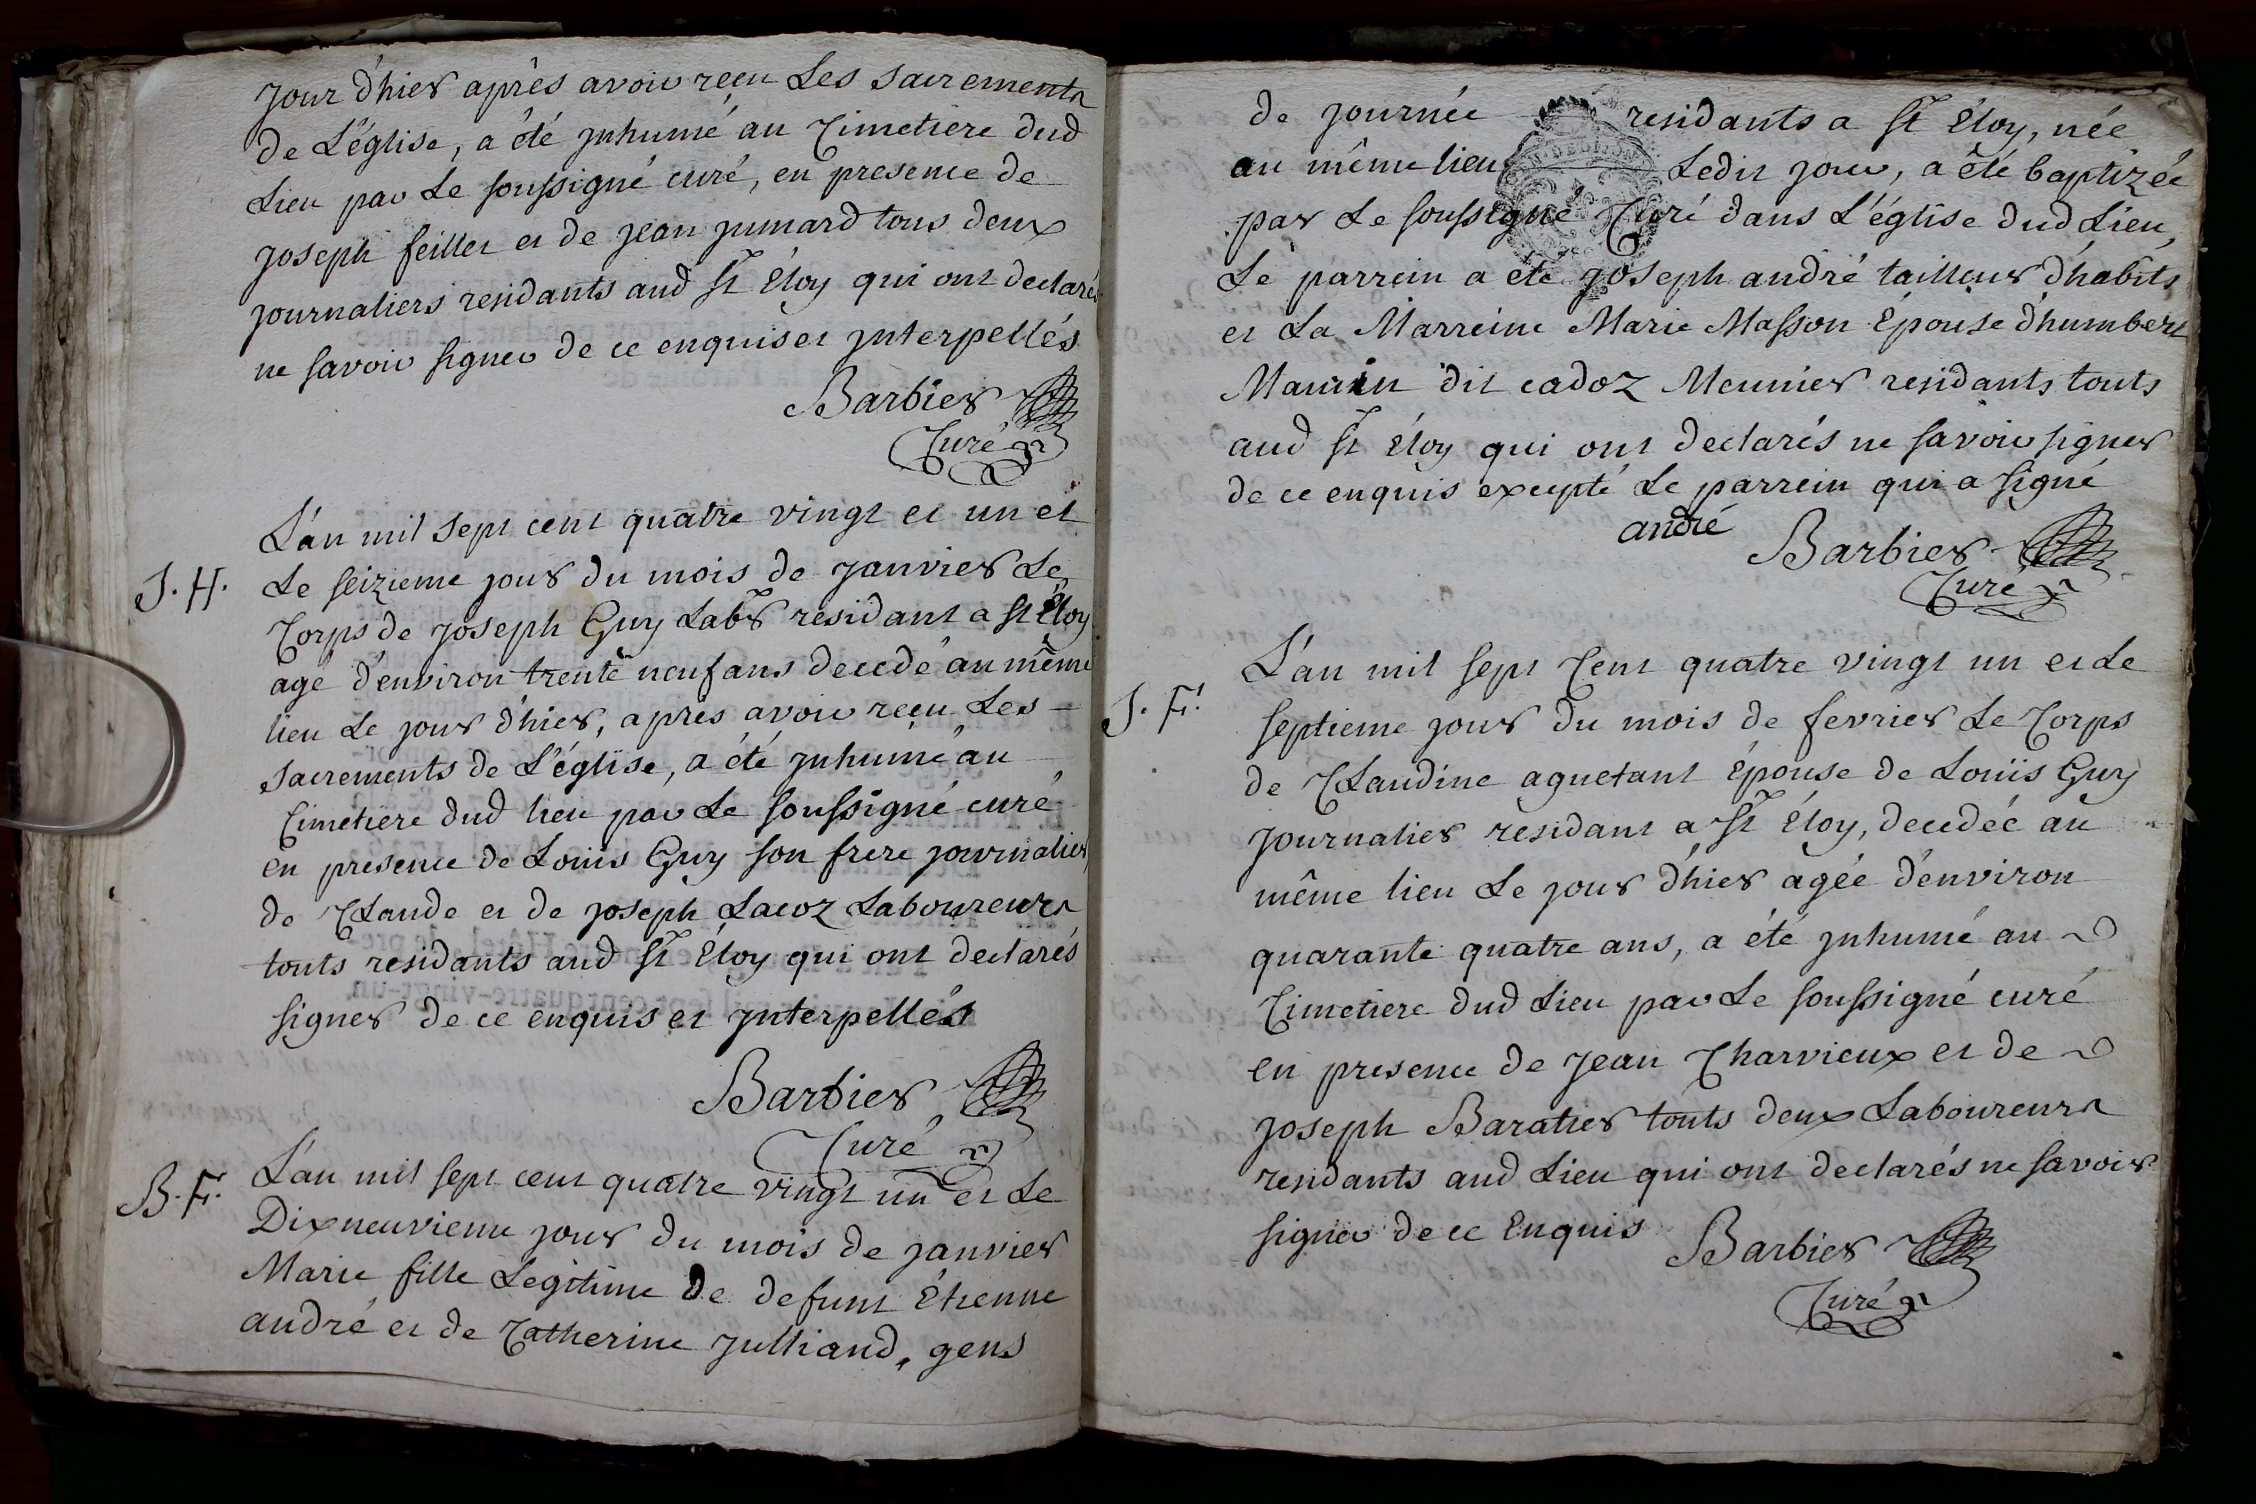 Jour d'hier aprês avoir reçu Les sacrements
de L'église, a été Inhumé au Cimetiere dud
Lieu par Le soussigné curé, en presence de
Joseph feillet et de Jean Jumard tous deux
Journaliers residants aud St Éloy qui ont declarés
ne savoir signer de ce enquis et Interpellés
Barbier
Curé
L'an mil sept cent quatre vingt et un et
J. H. Le seizieme jour du mois de Janvier Le
Corps de Joseph Guy Labr residant a St Éloy
agé d'environ trente neuf ans decedé au même
lieu Le jour d'hier, apres avoir reçu Les
sacrements de L'église, a été Inhumé au
Cimetiere dud lieu par Le soussigné curé
en presence de Louis Guy son frere journalier
de CLaude et de Joseph Lacoz Laboureurs
touts residants aud St Éloy qui ont declarés
signer de ce enquis et Interpellés
Barbier
Curé
B. F. L'an mil sept cent quatre vingt un et Le
Dixneuvieme jour du mois de janvier
Marie fille Legitime de defunt Étienne
andré et de Catherine Julliand, gens
de journée residants a St Éloy, née
au même lieu Ledit jour, a été baptizée
par Le soussigné Curé dans L'église dud Lieu,
Le parrein a été Joseph andré tailleur d'habits
et La Marreine Marie Masson Épouse d'humbert
Maurin dit cadoz Meunier residants touts
aud St Éloy qui ont declarés ne savoir signer
de ce enquis excepté Le parrein qui a signé
andré Barbier
Curé
L'an mil sept Cent quatre vingt un et Le
J. F. septieme jour du mois de fevrier Le Corps
de CLaudine aguetant Épouse de Louis Guy
Journalier residant a St Éloy, decedée au
même lieu Le jour d'hier agée d'environ
quarante quatre ans, a été Inhumé au
Cimetiere dud Lieu par Le soussigné curé
en presence de Jean Charvieux et de
Joseph Baratier touts deux Laboureurs
residants aud Lieu qui ont declarés ne savoir
signer de ce Enquis Barbier
Curé